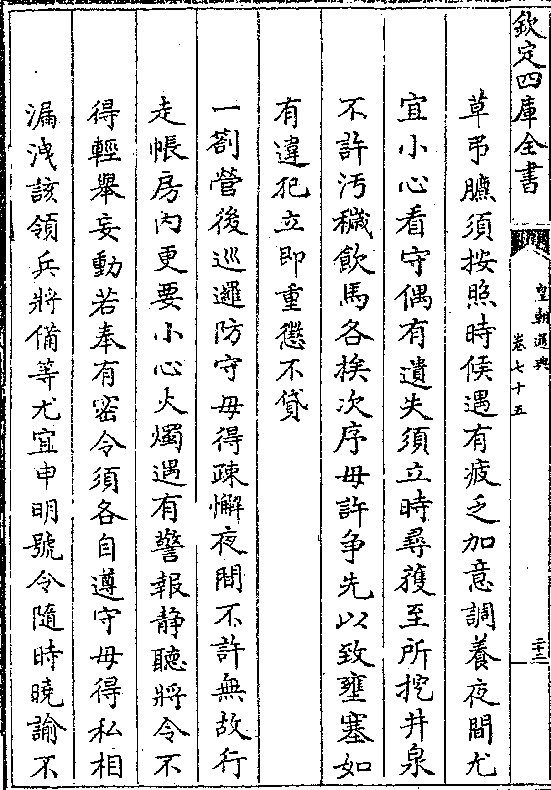 欽定四庫全書
皇朝通典
卷七十五
二十三
草弔臕須按照時候遇有疲乏加意調養夜間尤
宜小心看守偶有遺失須立時尋獲至所挖井泉
不許汚穢飲馬各挨次序毋許争先以致壅塞如
有違犯立即重懲不貸
一劄營後巡邏防守毋得疎懈夜間不許無故行
走帳房內更要小心火燭遇有警報靜聽將令不
得輕舉妄動若奉有密令須各自遵守毋得私相
漏洩該領兵將備等尤宜申明號令隨時曉諭不